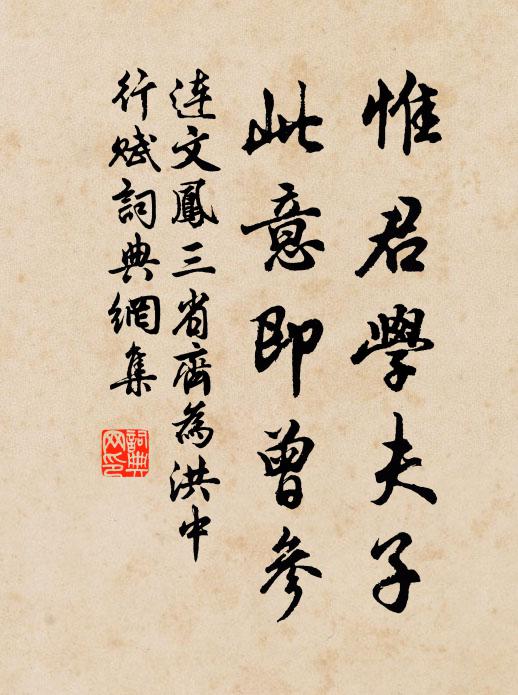 惟君學夫子
此意即曾參
连文鳳三省齋為洪中
行賦詞典網集
詞典网印